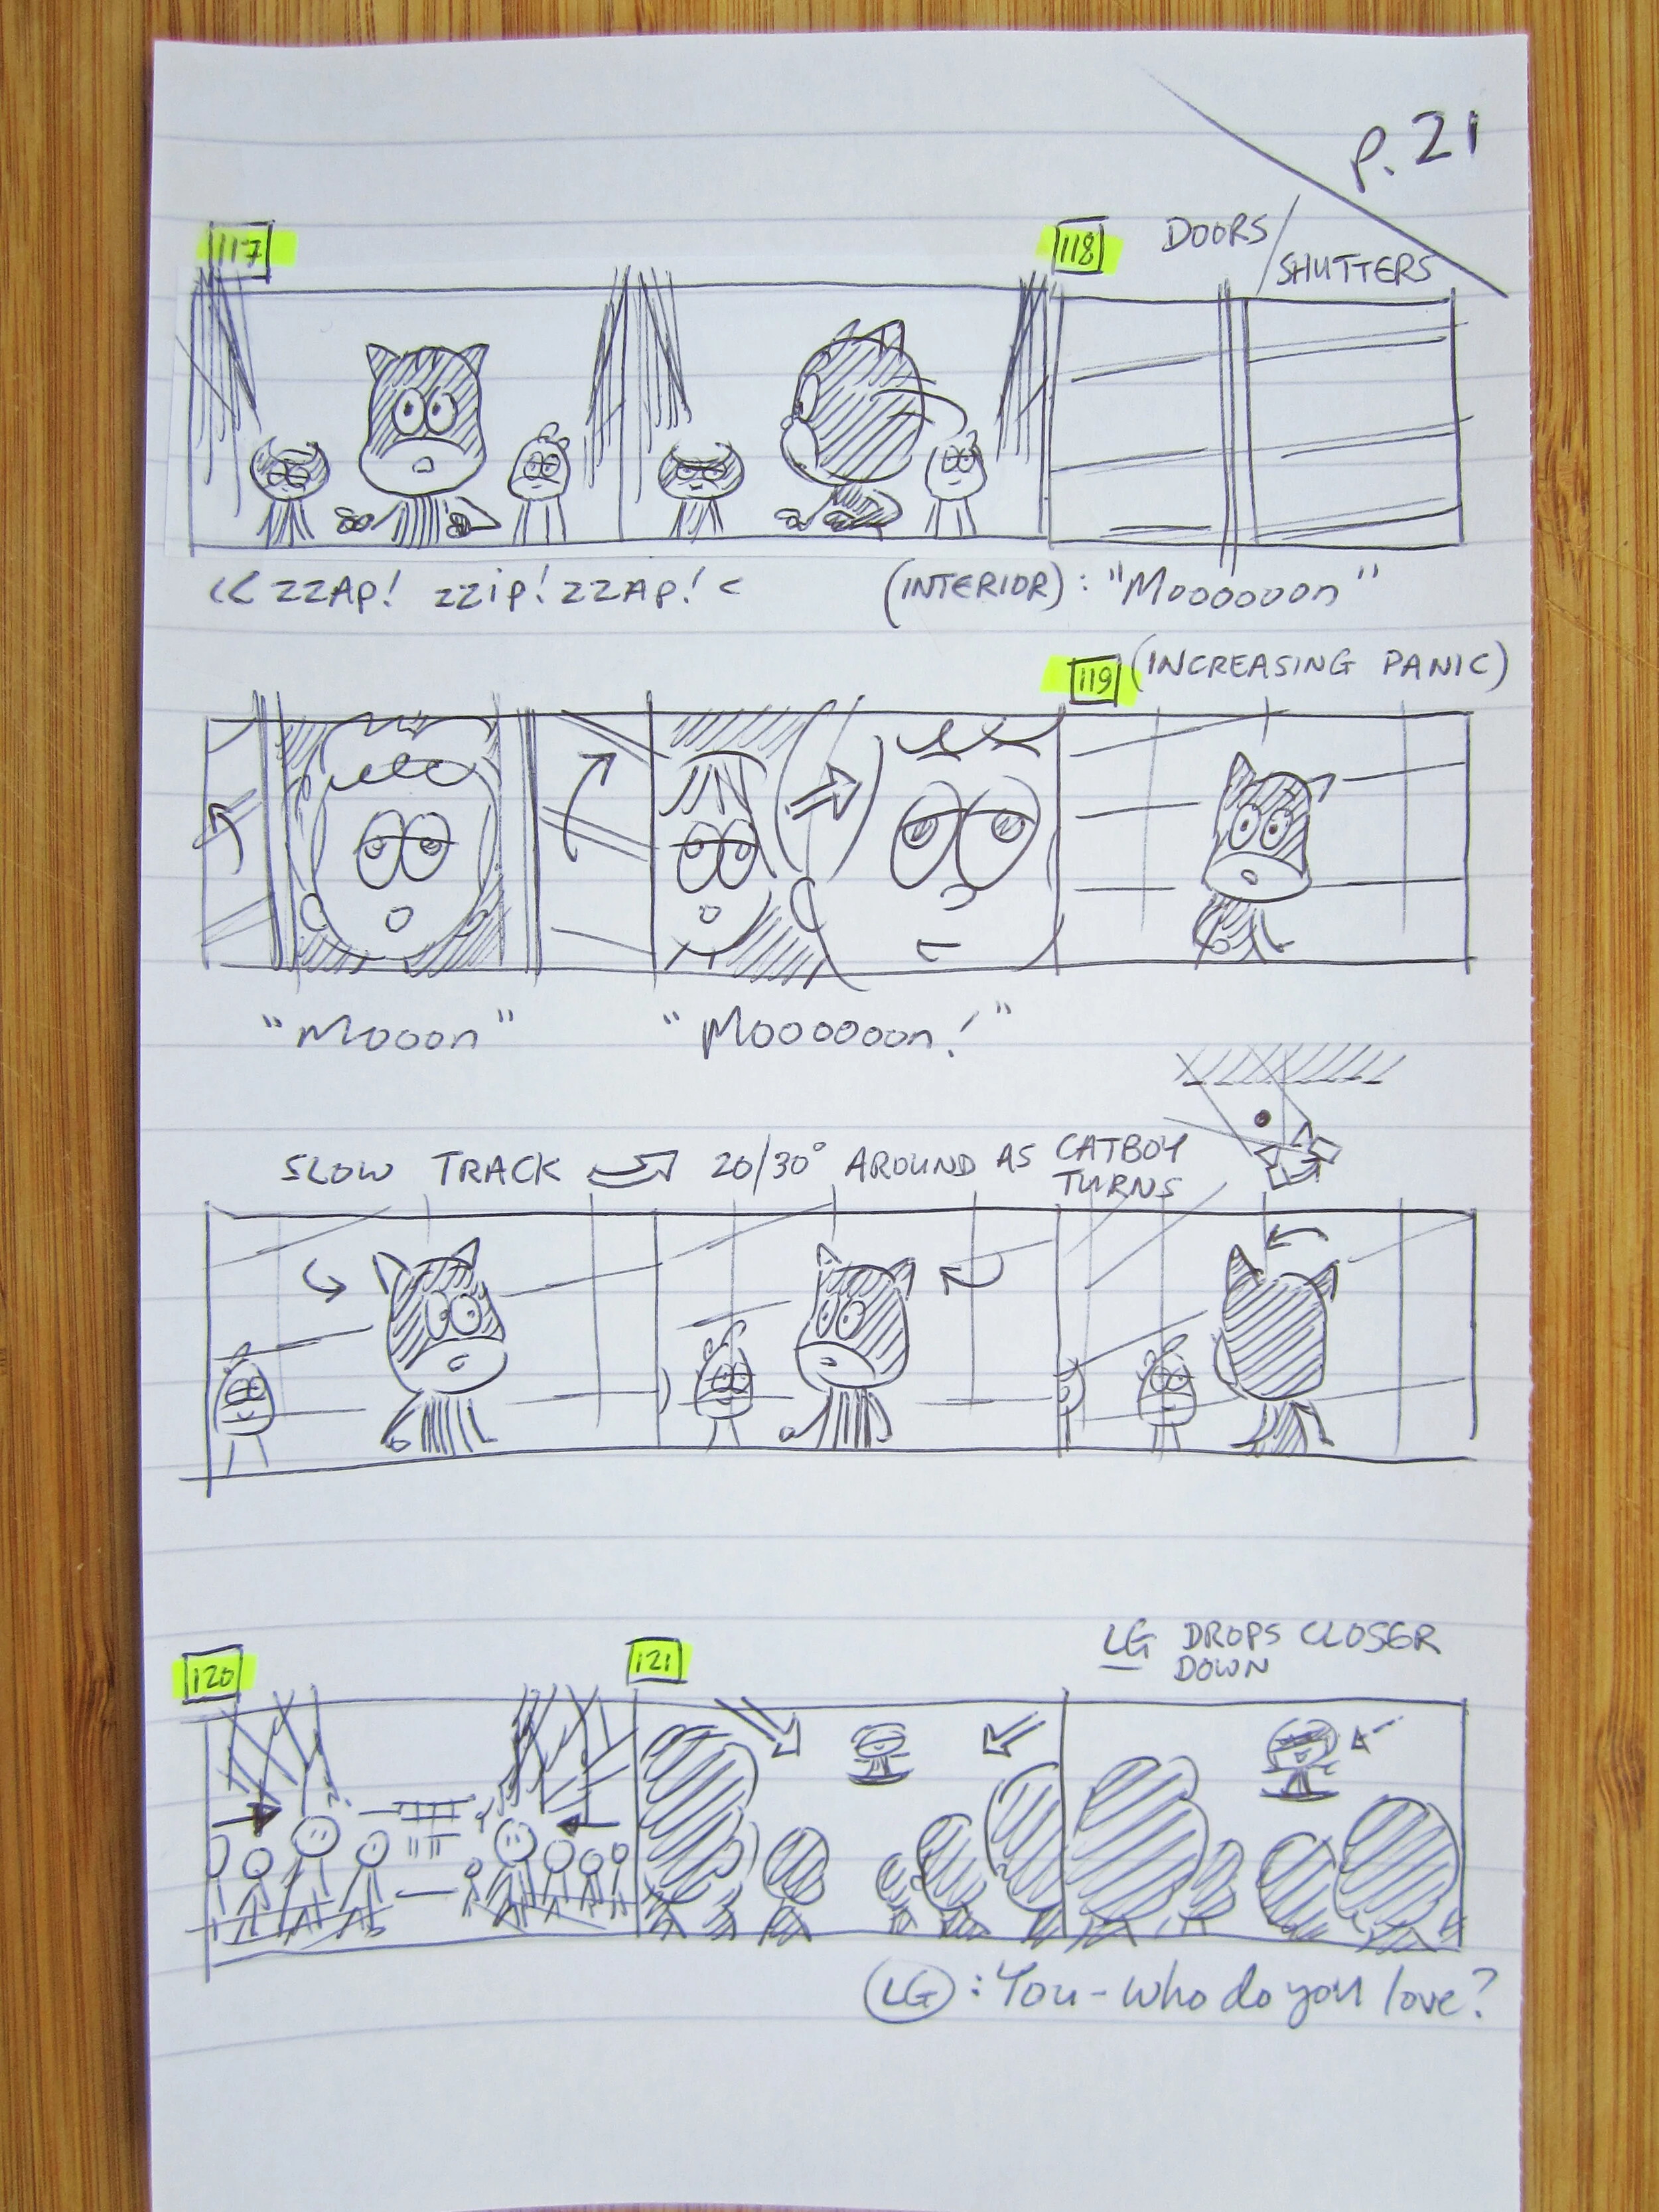 P. 21
117
118
DOORS/
SHUTTERS
<< ZZAP! ZZIP! ZZAP! <
(INTERIOR): "Mooooooon"
119 (INCREASING PANIC)
"Mooon"
"Moooooon!"
SLOW TRACK 20/30° AROUND AS CATBOY
TURNS
120
121
LG DROPS CLOSER
DOWN
LG: You - who do you love?